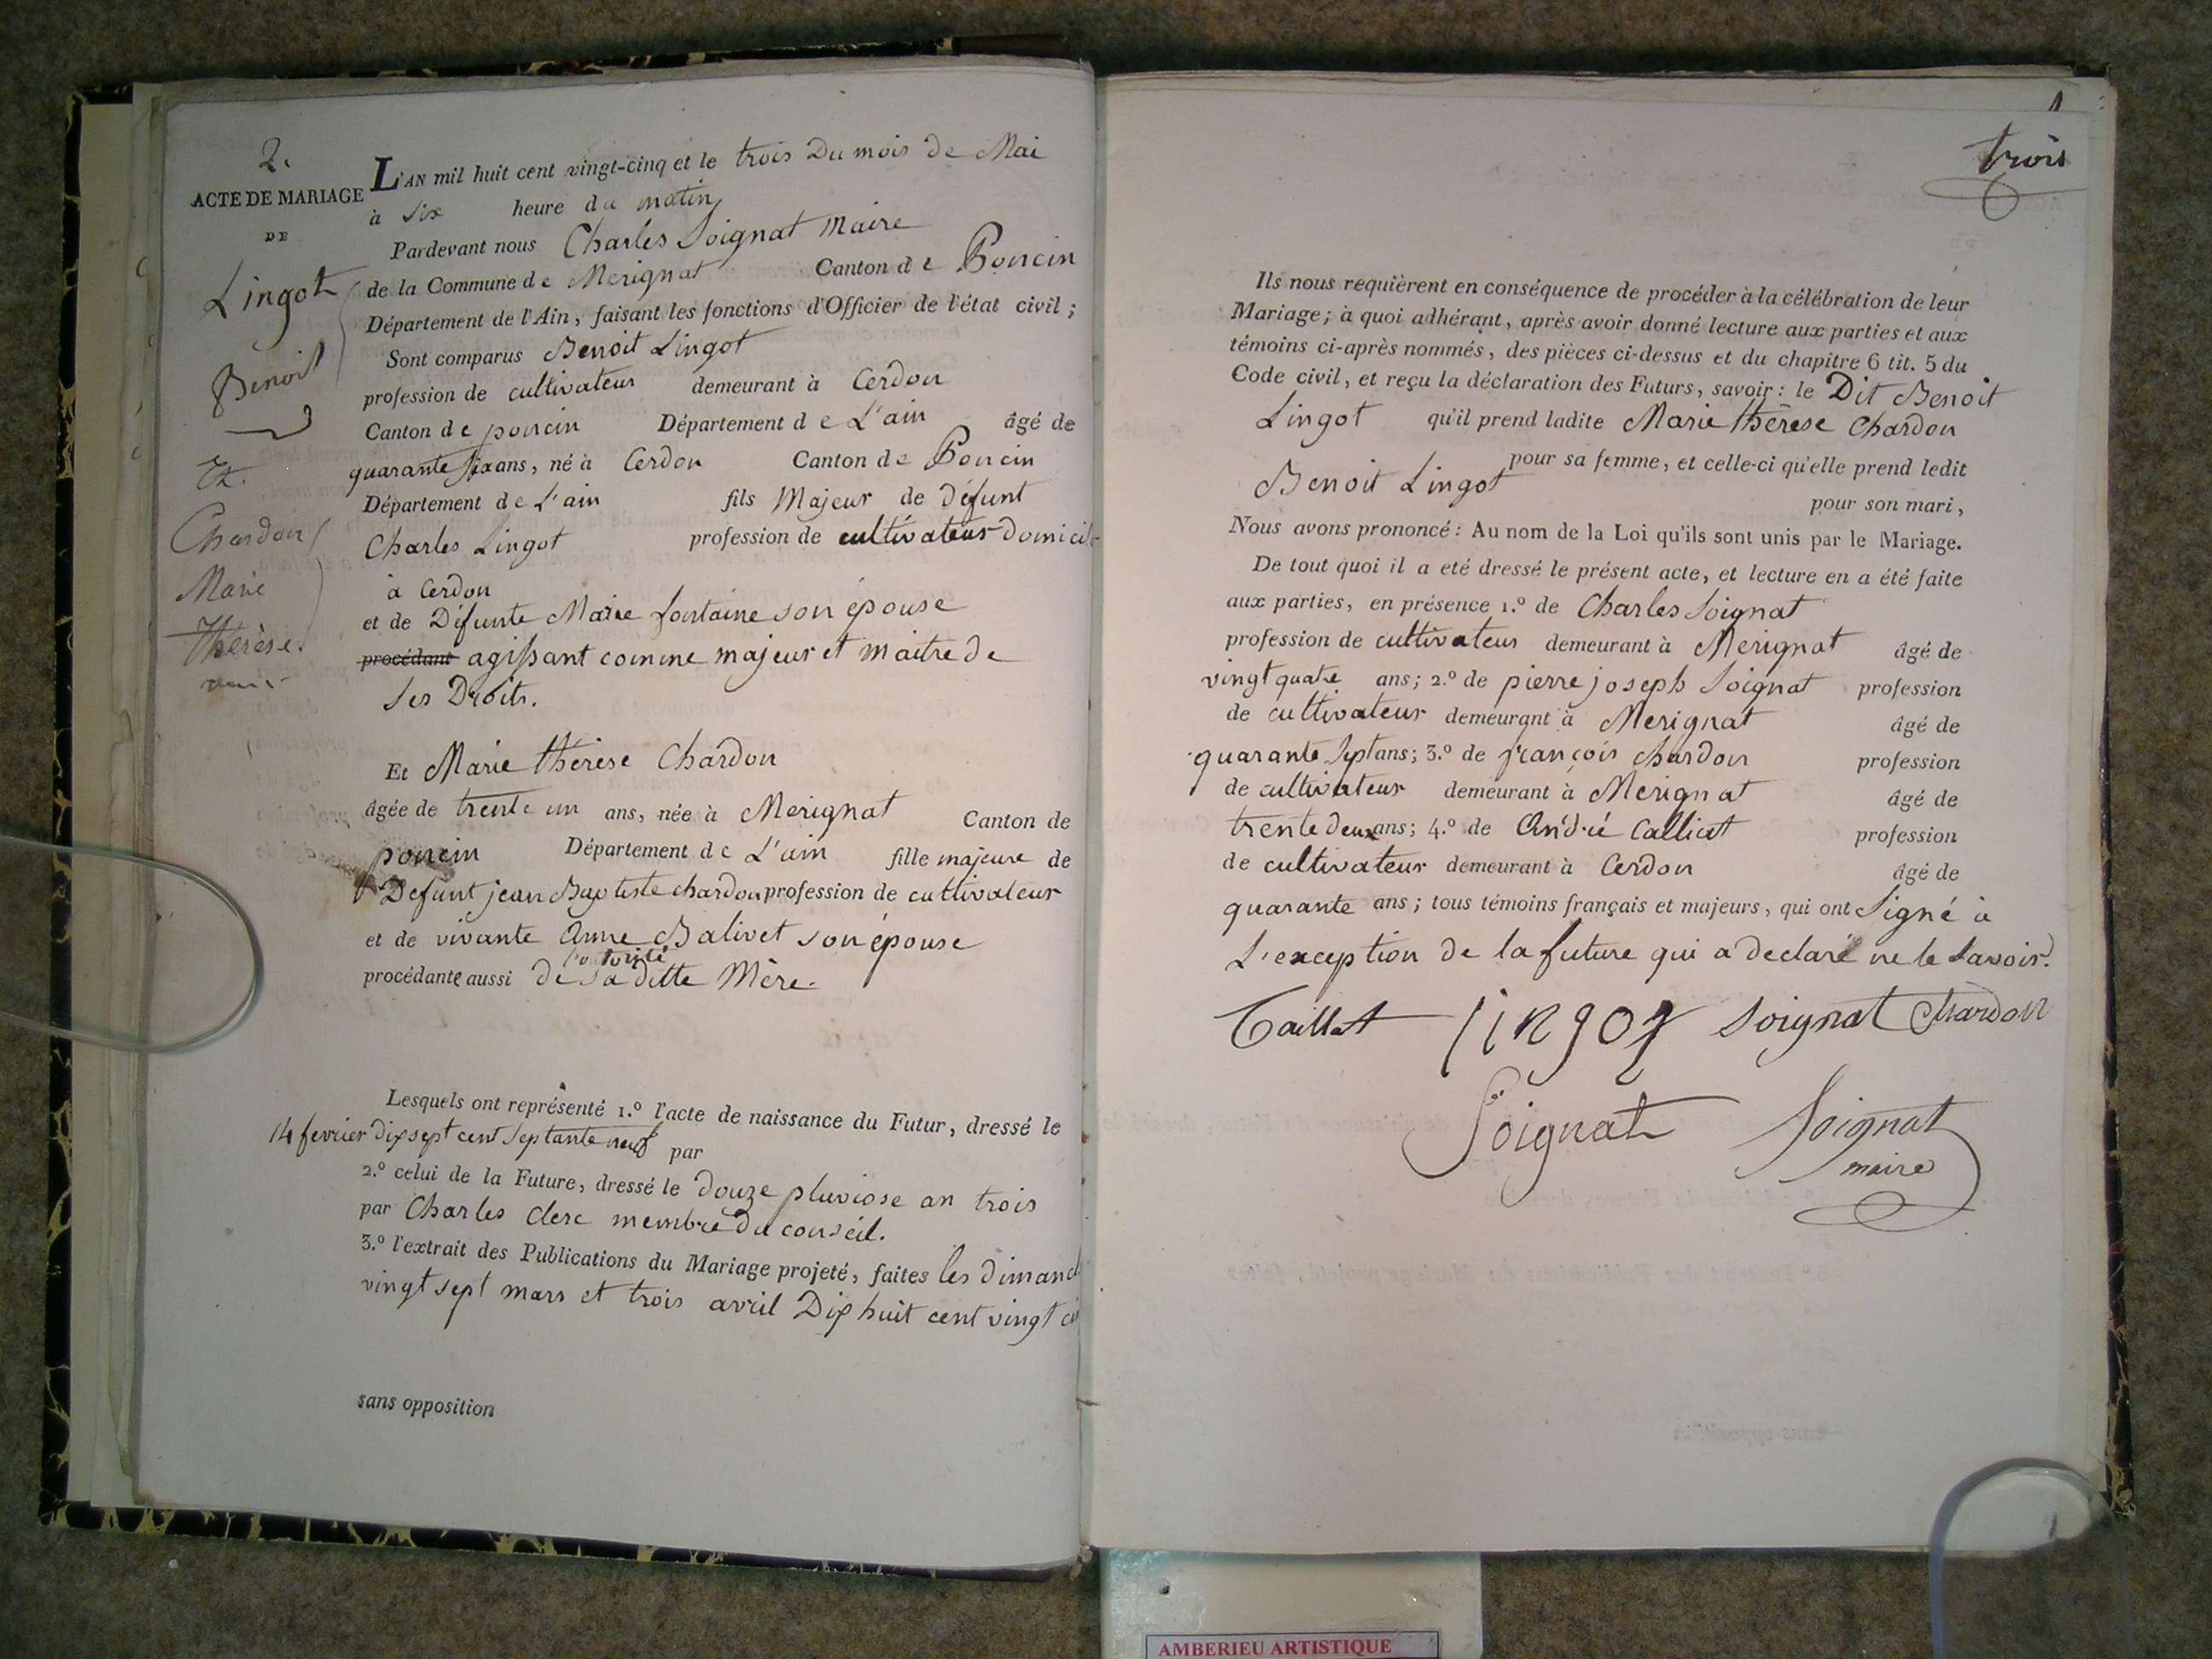 2.
ACTE DE MARIAGE
DE
Lingot
Benoit
Et.
Chardon
Marie
Thérèse.
L'AN mil huit cent vingt-cinq et le trois Du mois de Mai
à six heure du matin
Pardevant nous Charles Soignat Maire
de la Commune de Merignat Canton de Poncin
Département de l'Ain, faisant les fonctions d'Officier de l'état civil;
Sont comparus Benoit Lingot
profession de cultivateur demeurant à Cerdon
Canton de poncin Département de L'ain âgé de
quarante six ans, né à Cerdon Canton de Poncin
Département de L'ain fils Majeur de Défunt
Charles Lingot profession de cultivateur Domicil
à Cerdon
et de Défunte Marie fontaine son épouse
procédant agissant comme majeur et maitre de
ses Droits.
Et Marie thérèse Chardon
âgée de trente un ans, née à Merignat Canton de
poncin Département de L'ain fille majeure de
Defunt jean Baptiste chardon profession de cultivateur
et de vivante Anne Balivet son épouse
procédante aussi de sa ditte Mère.
Lesquels ont représenté 1.º l'acte de naissance du Futur, dressé le
14 fevrier Dix sept cent septante neuf par
2.º celui de la Future, dressé le Douze pluviose an trois
par Charles Clerc membre du conseil.
3.º l'extrait des Publications du Mariage projeté, faites les dimanch
vingt sept mars et trois avril Dix huit cent vingt ci
sans opposition
trois
Ils nous requièrent en conséquence de procéder à la célébration de leur
Mariage; à quoi adhérant, après avoir donné lecture aux parties et aux
témoins ci-après nommés, des pièces ci-dessus et du chapitre 6 tit. 5 du
Code civil, et reçu la déclaration des Futurs, savoir: le Dit Benoit
Lingot qu'il prend ladite Marie thérèse Chardon
pour sa femme, et celle-ci qu'elle prend ledit
Benoit Lingot pour son mari,
Nous avons prononcé: Au nom de la Loi qu'ils sont unis par le Mariage.
De tout quoi il a eté dressé le présent acte, et lecture en a été faite
aux parties, en présence 1.º de Charles Soignat
profession de cultivateur demeurant à Merignat âgé de
vingt quatre ans; 2.º de pierre joseph Soignat profession
de cultivateur demeurant à Merignat âgé de
quarante sept ans; 3.º de françois chardon profession
de cultivateur demeurant à Merignat âgé de
trente deux ans; 4.º de André Calliat profession
de cultivateur demeurant à Cerdon âgé de
quarante ans; tous témoins français et majeurs, qui ont Signé à
L'exception de la future qui a declaré ne le savoir.
Caillat lingot Soignat Chardon
Soignat Soignat
maire
AMBERIEU ARTISTIQUE